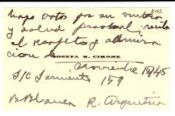 hago votos por su ventura
y salud personal, reciba
el respeto y admira
cion de
JOSEFA R. CIRONE
Noviembre 1945
S/C Sarmiento 159
B Blanca R. Argentina